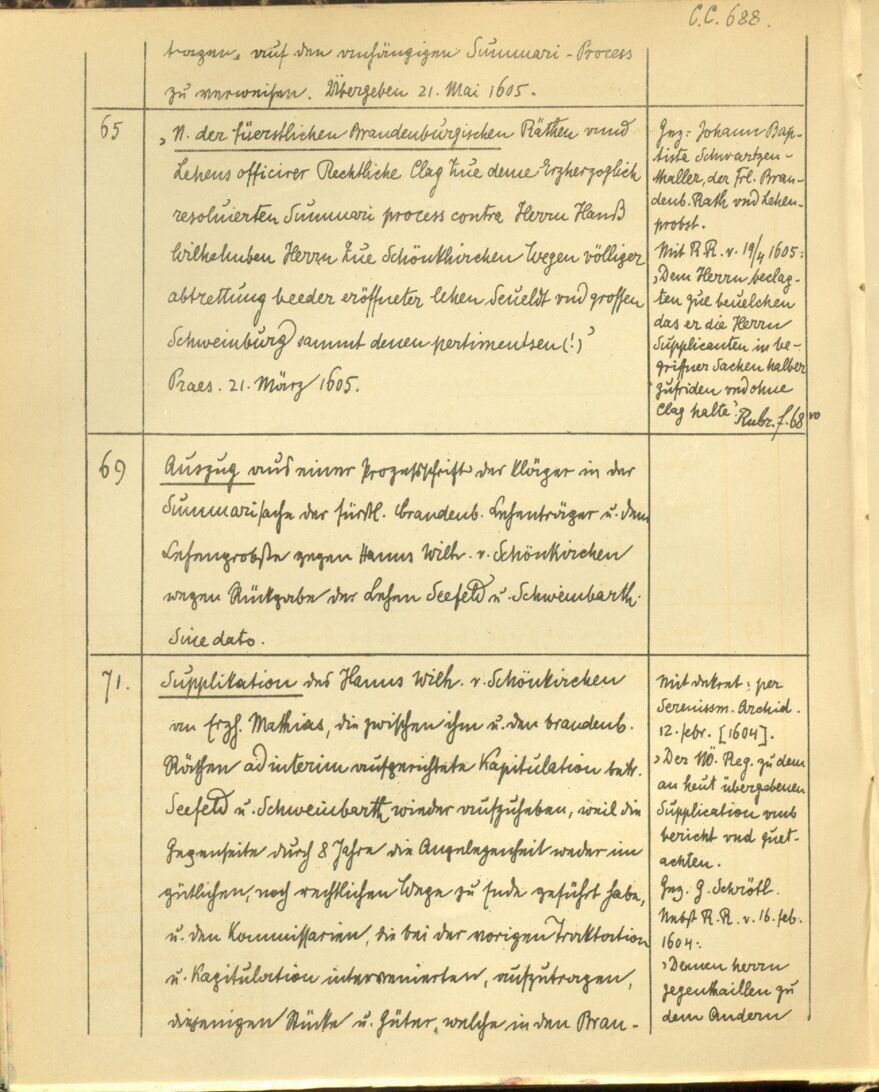 C.C. 688.
tragen, auf den anhängigen Summari-Process
zu verweisen. Übergeben 21. Mai 1605.
65
„N. der fürstlichen Brandenburgischen Räthen vnnd
Lehens officirer Rechtliche Clag Zue deme Erzherzoglich
resoluierten Summari process contra Herrn Hannß
Wilhelmben Herrn Zue Schönkhirchen Wegen völliger
abtrettung beeder eröffneter lehen Seueldt vnd grossen
Schweinburg sammt denen pertimentsen (!)‟
Praes. 21. März 1605.
Gez: Johann Bap-
tista Schwartzen-
thaller, der Frl. Bran-
denb. Rath vnd Lehen-
probst.
Mit R.R. v. 19/4 1605:
„Dem Herrn beclag-
ten zue beuelchen
das er die Herrn
Supplicanten in be-
griffner Sachen halber
zufriden vnd ohne
Clag halte‟. Rubr. f. 68 vo
69
Auszug aus einer Prozessschrift der Kläger in der
Summarisache der fürstl. brandenb. Lehenträger u. dem
Lehenprobste gegen Hanns Wilh. v. Schönkirchen
wegen Rückgabe der Lehen Seefeld u. Schweinbarth.
Sine dato.
71.
Supplikation des Hanns Wilh. v. Schönkirchen
an Erzh. Mathias, die zwischen ihm u. den brandenb.
Räthen ad interim aufgerichtete Kapitulation betr.
Seefeld u. Schweinbarth wieder aufzuheben, weil die
Gegenseite durch 8 Jahre die Angelegenheit weder im
gütlichen, noch rechtlichen Wege zu Ende geführt habe,
u. den Kommissarien, die bei der vorigen Traktation
u. Kapitulation intervenierten, aufzutragen,
diejenigen Stücke u. Güter, welche in den Bran-
Mit dekret: per
Serenissm. Archid.
12. febr. [1604].
„Der NÖ. Reg. zu dem
an heut übergebenen
Supplication vmb
bericht vnd guet-
achten.
Gez. G. Schrötl.
Nebst R.R. v. 16. feb.
1604:
„Dennen herrn
gegenthaillen zu
dem Andern